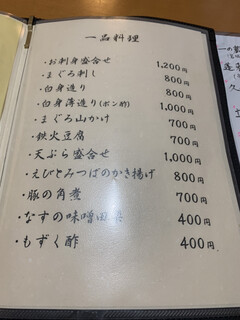 一品料理
・お刺身盛合せ 1,200円
・まぐろ刺し 800円
・白身造り 800円
・白身薄造り(ポン酢) 1,000円
・まぐろ山かけ 700円
・鉄火豆腐 700円
・天ぷら盛合せ 1,000円
・えびとみつばのかき揚げ 800円
・豚の角煮 700円
・なすの味噌田楽 400円
・もずく酢 400円